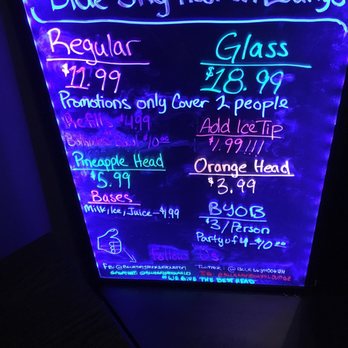 Blue Sky Hookah Lounge
Regular
$11.99
Glass
$18.99
Promotions only Cover 2 people
Refill $4.99
Add Ice Tip
$1.99!!!
Pineapple Head
$5.99
Orange Head
$3.99
Bases
Milk, Ice, Juice - $1.99
BYOB
$3/Person
Party of 4 - $10.00
Follow Us
FB:
Twitter:
IG:
#WE GIVE THE BEST HEAD